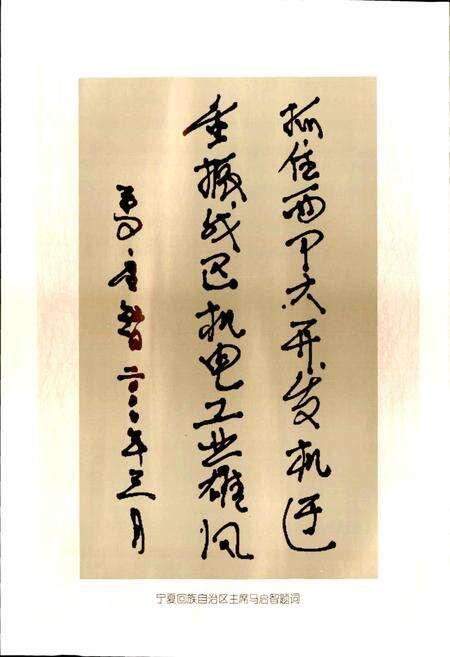 抓住西部大开发机遇
重振我区机电工业雄风
马启智 二〇〇〇年三月
宁夏回族自治区主席马启智题词